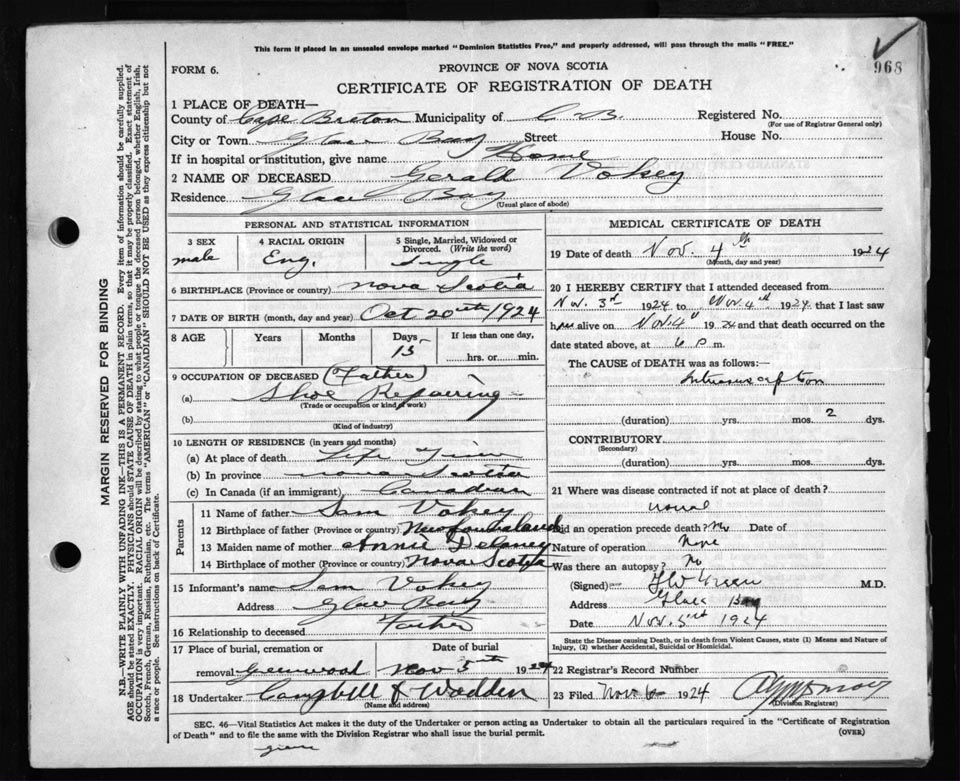 This form if placed in an unsealed envelope marked "Dominion Statistics Free," and properly addressed, will pass through the mails "FREE."
968
FORM 6.
PROVINCE OF NOVA SCOTIA
CERTIFICATE OF REGISTRATION OF DEATH
1 PLACE OF DEATH—
County of Cape Breton Municipality of C. B. Registered No.
(For use of Registrar General only)
City or Town Glace Bay Street House No.
If in hospital or institution, give name Home
2 NAME OF DECEASED Gerald Vokey
Residence Glace Bay
(Usual place of abode)
PERSONAL AND STATISTICAL INFORMATION
3 SEX male
4 RACIAL ORIGIN Eng.
5 Single, Married, Widowed or Divorced. (Write the word) Single
6 BIRTHPLACE (Province or country) Nova Scotia
7 DATE OF BIRTH (month, day and year) Oct 20th 1924
8 AGE Years Months Days 15 If less than one day, hrs. or min.
9 OCCUPATION OF DECEASED (Father)
(a) Shoe Repairing
(Trade or occupation or kind of work)
(b)
(Kind of industry)
10 LENGTH OF RESIDENCE (in years and months)
(a) At place of death Life Time
(b) In province Nova Scotia
(c) In Canada (if an immigrant) Canadian
Parents
11 Name of father Sam Vokey
12 Birthplace of father (Province or country) Newfoundland
13 Maiden name of mother Annie Delaney
14 Birthplace of mother (Province or country) Nova Scotia
15 Informant's name Sam Vokey
Address Glace Bay
16 Relationship to deceased Father
17 Place of burial, cremation or
removal Greenwood Nov 5th 1924
18 Undertaker Campbell & Wadden
(Name and address)
MEDICAL CERTIFICATE OF DEATH
19 Date of death Nov. 4th 1924
(Month, day and year)
20 I HEREBY CERTIFY that I attended deceased from
Nov. 3rd 1924 to Nov. 4th 1924 that I last saw
him alive on Nov. 4th 1924 and that death occurred on
the date stated above, at 6 P m.
The CAUSE OF DEATH was as follows:
(duration) yrs. mos. 2 dys.
CONTRIBUTORY
(Secondary)
(duration) yrs. mos. dys.
21 Where was disease contracted if not at place of death?
Did an operation precede death? No Date of
Nature of operation None
Was there an autopsy? No
(Signed) Green M.D.
Address Glace Bay
Date Nov. 5th 1924
State the Disease causing Death, or in death from Violent Causes, state (1) Means and Nature of
Injury, and (2) whether Accidental, Suicidal or Homicidal.
22 Registrar's Record Number
23 Filed Nov 6 1924
(Division Registrar)
SEC. 46—Vital Statistics Act makes it the duty of the Undertaker or person acting as Undertaker to obtain all the particulars required in the "Certificate of Registration
of Death" and to file the same with the Division Registrar who shall issue the burial permit.
(OVER)
MARGIN RESERVED FOR BINDING
N.B.—WRITE PLAINLY WITH UNFADING INK—THIS IS A PERMANENT RECORD. Every item of information should be carefully supplied.
AGE should be stated EXACTLY. PHYSICIANS should STATE CAUSE OF DEATH in plain terms, so that it may be properly classified. Exact statement of
OCCUPATION is very important. RACIAL ORIGIN will be described by stating to what people or tongue the deceased person belonged, whether English, Irish,
Scotch, French, German, Russian, Ruthenian, etc. The terms "AMERICAN" or "CANADIAN" SHOULD NOT BE USED as they express citizenship but not
a race or people. See instructions on back of Certificate.